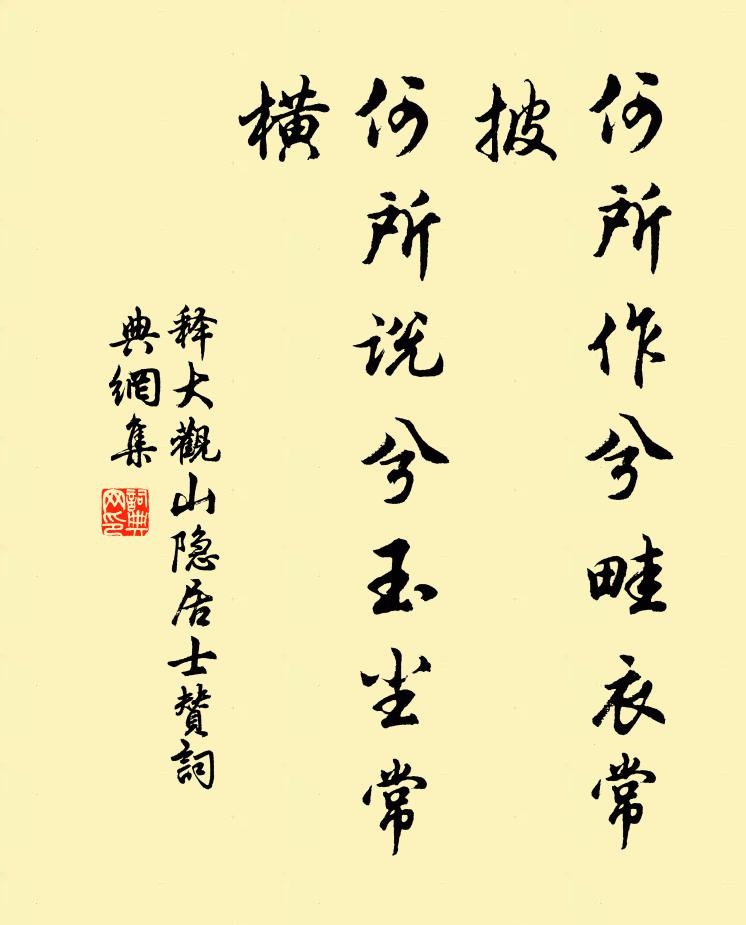 何所作兮畦衣常
披
何所说兮玉尘常
横
释大觀山隐居士赞詞
典網集
詞典
网印